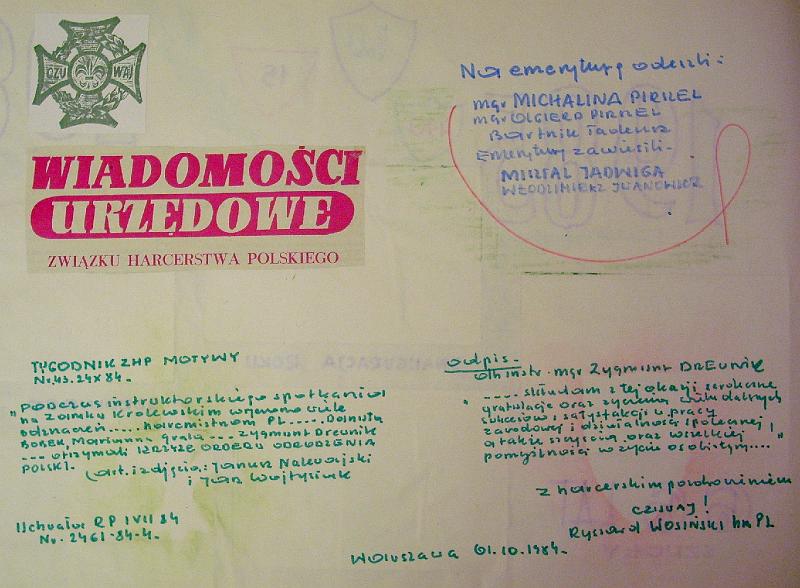 CZU WAJ
WIADOMOŚCI
URZĘDOWE
ZWIĄZKU HARCERSTWA POLSKIEGO
Na emeryturę odeszli:
mgr MICHALINA PIRKEL
mgr OLGIERD PIRKEL
Bartnik Tadeusz
Emerytury zawiesili-
MUSFAL JADWIGA
WŁODZIMIERZ IWANOWICZ
TYGODNIK ZHP MOTYWY
Nr.43. 24X84.
"PODCZAS instruktorskiego spotkania
na Zamku Królewskim wręczono wiele
odznaczeń..... harcmistrzom PL..... Danuta
BOBEK, Marianna grala.... Zygmunt Dreunik
.... otrzymali KRZYŻE ORDERU ODRODZENIA
POLSKI.
(art. i zdjęcia: Janusz
i Jan Wojtysiak
Uchwała RP 1 VII 84
Nr. 2461-84-4.
odpis.-
dh instr. mgr Zygmunt DREUNIK
" .... składam z tej okazji serdeczne
gratulacje oraz życzenia wielu dalszych
sukcesów i satysfakcji w pracy
zawodowej i działalności społecznej,
a także szczęścia oraz wszelkiej
pomyślności w życiu osobistym...."
z harcerskim pozdrowieniem
CZUWAJ!
Ryszard WOSIŃSKI hm PL
Warszawa 01.10.1984.